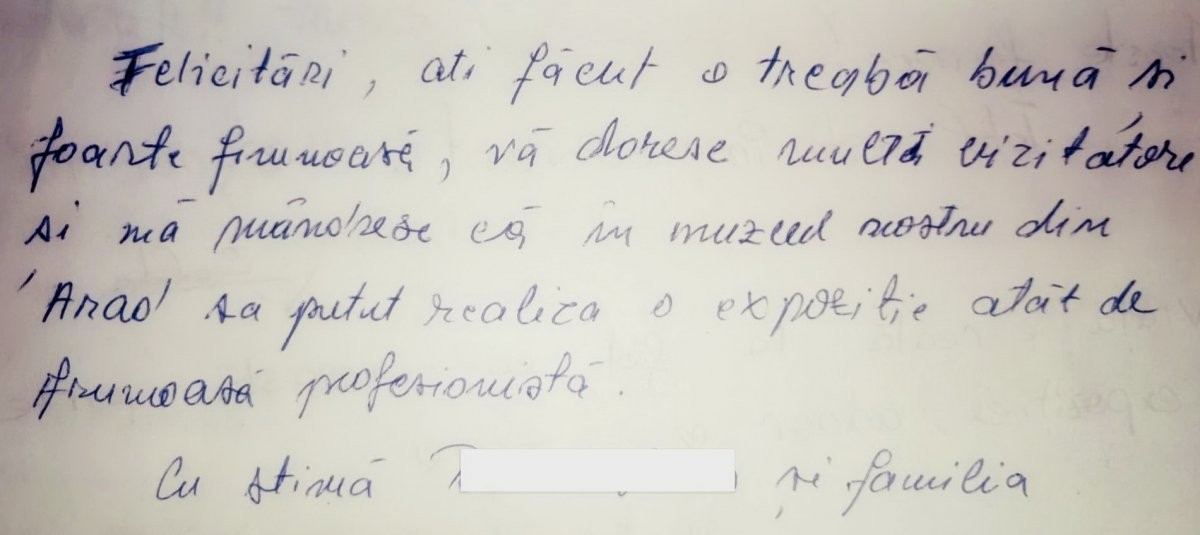 Felicitări, ati făcut o treabă bună si
foarte frumoasă, vă doresc multă vizitatore
si mă mândresc că in muzeul nostru din
Arad sa putut realiza o expozitie atât de
frumoasă profesionistă.
Cu stimă și familia